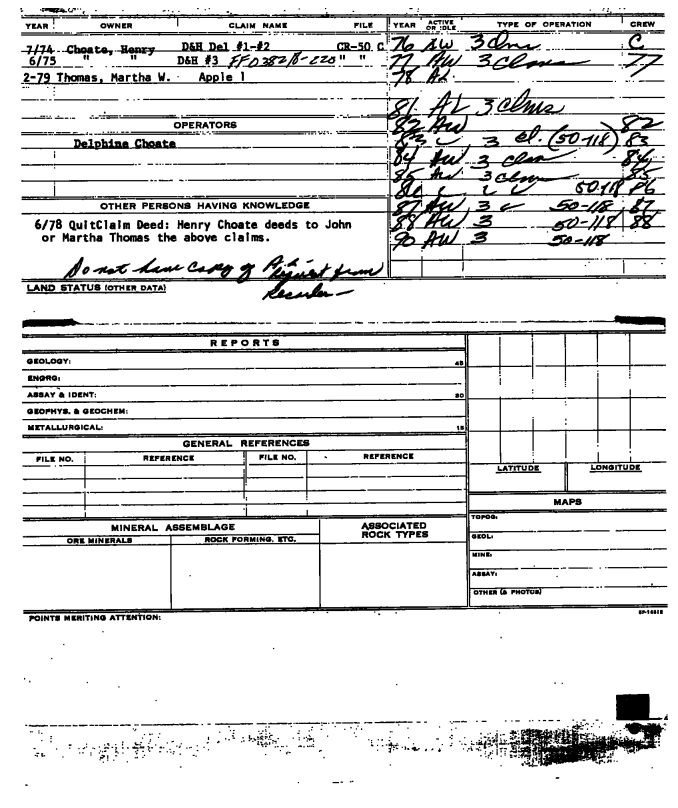 YEAR OWNER CLAIM NAME FILE YEAR ACTIVE OR IDLE TYPE OF OPERATION CREW
7/74 Choate, Henry D&H Del #1-#2 CR-50 C 76 AW 3 Clms C
6/75 " " D&H #3 FF 038218-220 " " 77 AW 3 Clms 77
2-79 Thomas, Martha W. Apple 1 78 AL
81 AL 3 clms
OPERATORS 82 AW 82
Delphine Choate 83 3 cl. (50-118) 83
84 AW 3 clm 84
85 AW 3 clm 85
50-118 86
OTHER PERSONS HAVING KNOWLEDGE 87 AW 3 50-118 87
6/78 QuitClaim Deed: Henry Choate deeds to John 88 AW 3 50-118 88
or Martha Thomas the above claims. 90 AW 3 50-118
Do not have copy of A.L. - request from
Recorder -
LAND STATUS (OTHER DATA)
REPORTS
GEOLOGY: 45
ENGRG:
ASSAY & IDENT: 30
GEOPHYS. & GEOCHEM:
METALLURGICAL: 15
GENERAL REFERENCES
FILE NO. REFERENCE FILE NO. REFERENCE
LATITUDE LONGITUDE
MAPS
MINERAL ASSEMBLAGE ASSOCIATED ROCK TYPES TOPOG:
ORE MINERALS ROCK FORMING, ETC. GEOL:
MINE:
ASSAY:
OTHER (& PHOTOS)
POINTS MERITING ATTENTION: